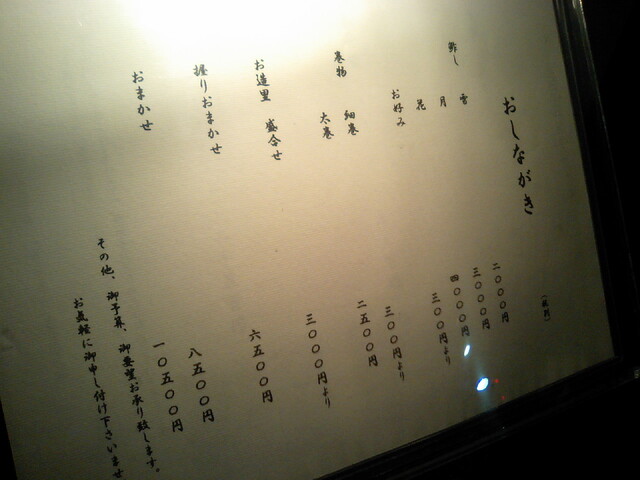 おしながき
雪 二〇〇〇円
月 三〇〇〇円
花 四〇〇〇円
お好み 三〇〇円より
巻物 細巻 三〇〇円より
太巻 二五〇〇円
お造里 盛合せ 三〇〇〇円より
握りおまかせ 六五〇〇円
おまかせ 八五〇〇円
一〇五〇〇円
その他、御予算、御要望お承り致します。
お気軽に御申し付け下さいませ